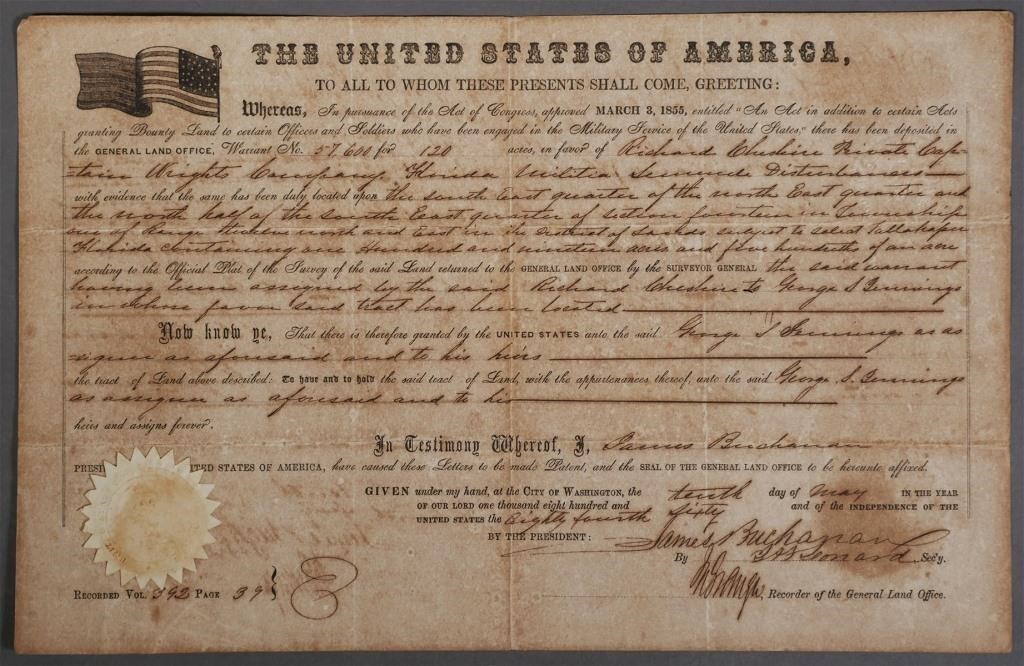 THE UNITED STATES OF AMERICA,
TO ALL TO WHOM THESE PRESENTS SHALL COME, GREETING:
Whereas, In pursuance of the Act of Congress, approved MARCH 3, 1855, entitled "An Act in addition to certain Acts
granting Bounty Land to certain Officers and Soldiers who have been engaged in the Military Service of the United States," there has been deposited in
the GENERAL LAND OFFICE, Warrant No. 57.600 for 120 acres, in favor of Richard Cheshire Private Cap-
-tain Wrights Company Florida Militia Seminole Disturbances
with evidence that the same has been duly located upon the South East quarter of the north East quarter and
the north half of the South East quarter of section fourteen in Township
one of Range north and East in the District of Lands subject to
Florida containing one Hundred and nineteen acres and five hundredths of an acre
according to the Official Plat of the Survey of the said Land returned to the GENERAL LAND OFFICE by the SURVEYOR GENERAL the said warrant
having been assigned by the said Richard Cheshire to George S Jennings
in whose favor said tract has been located
Now know ye, That there is therefore granted by the UNITED STATES unto the said George S Jennings as as
-signee as aforesaid and to his heirs
the tract of Land above described: To have and to hold the said tract of Land, with the appurtenances thereof, unto the said George S. Jennings
as assignee as aforesaid and to his
heirs and assigns forever.
In Testimony Whereof, I, James Buchanan
PRESI TED STATES OF AMERICA, have caused these Letters to be made Patent, and the SEAL OF THE GENERAL LAND OFFICE to be hereunto affixed.
GIVEN under my hand, at the CITY OF WASHINGTON, the tenth day of May IN THE YEAR
OF OUR LORD one thousand eight hundred and sixty and of the INDEPENDENCE OF THE
UNITED STATES the Eighty fourth
BY THE PRESIDENT: James Buchanan
By Leonard Sec'y.
RECORDED VOL. 392 PAGE 39
Recorder of the General Land Office.